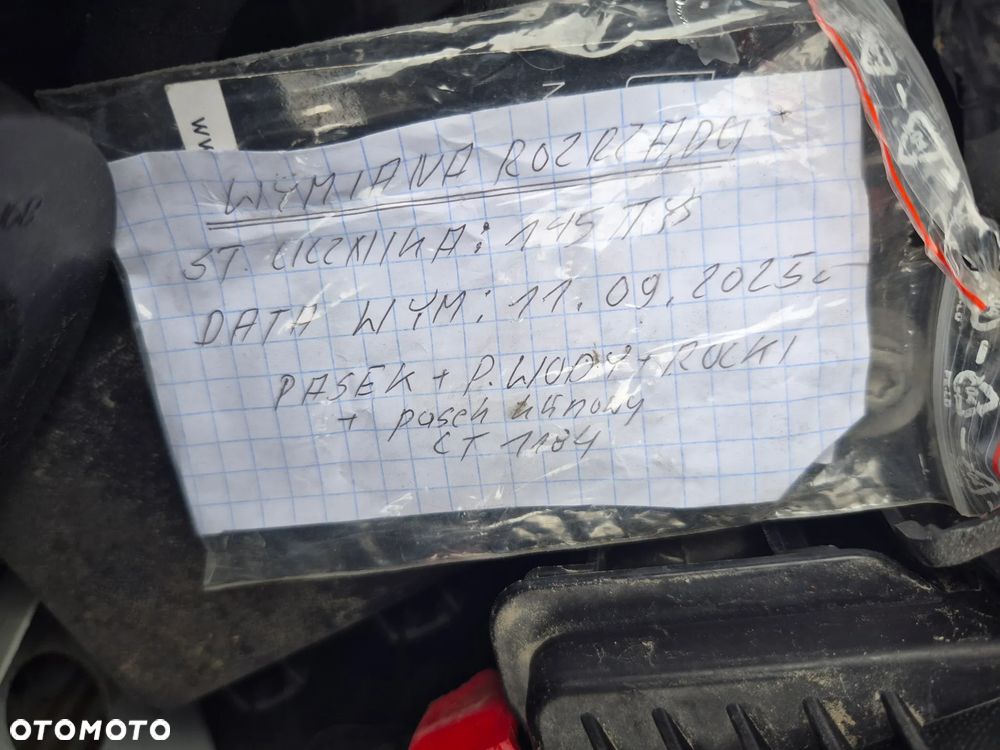 WYMIANA ROZRZĄDU
ST. LICZNIKA: 145 TYŚ
DATA WYM: 11.09.2025r
PASEK + P. WODY + ROLKI
+ pasek klinowy
CT 1184
OTOMOTO